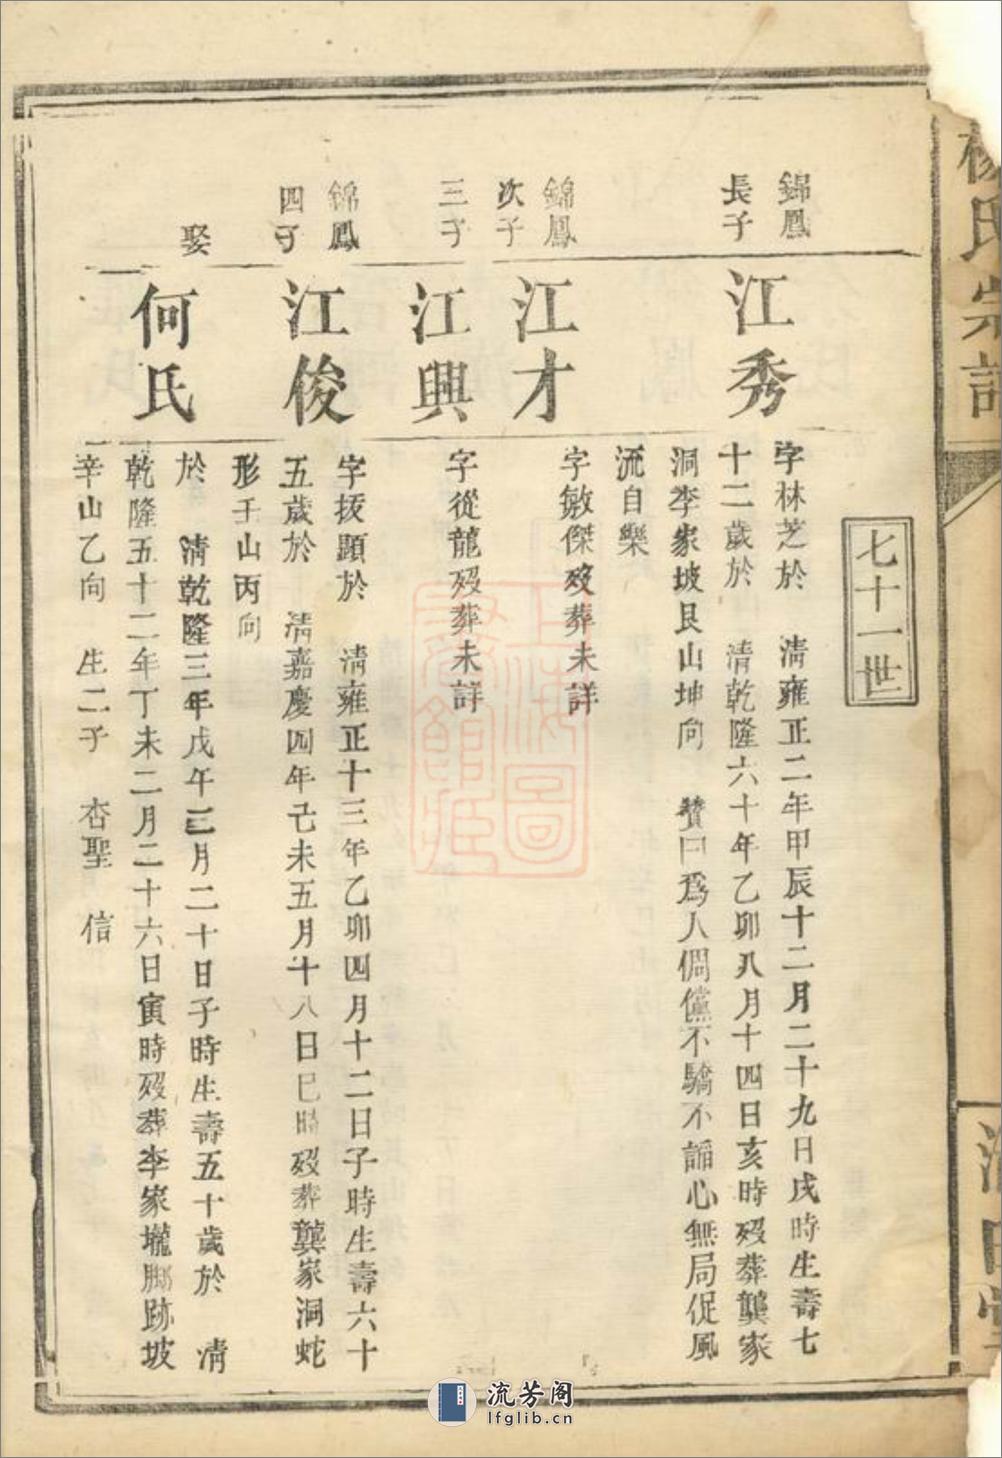 楊氏宗譜
七十一世
錦鳳
長子
江秀
字林芝於 清雍正二年甲辰十二月二十九日戌時生壽七
十二歲於 清乾隆六十年乙卯八月十四日亥時歿葬龔家
洞李家坡艮山坤向 贊曰為人倜儻不驕不諂心無局促風
流自樂
錦鳳
次子
江才
字敏傑歿葬未詳
三子
江興
字從龍歿葬未詳
錦鳳
四子
江俊
字拔顯於 清雍正十三年乙卯四月十二日子時生壽六十
五歲於 清嘉慶四年己未五月十八日巳時歿葬龔家洞蛇
形壬山丙向
娶
何氏
於 清乾隆三年戊午三月二十日子時生壽五十歲於 清
乾隆五十二年丁未二月二十六日寅時歿葬李家壠腳跡坡
辛山乙向 生二子 杏聖 信
上海圖書館藏
流芳阁
lfglib.cn